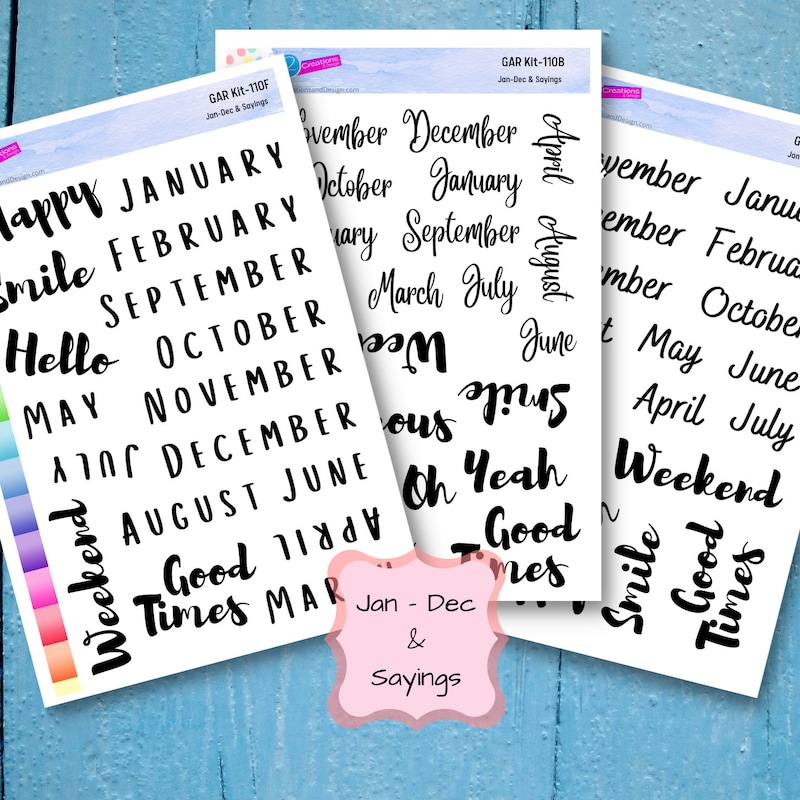 GAR Kit-110F
Jan-Dec & Sayings
Happy
JANUARY
FEBRUARY
Smile
SEPTEMBER
Hello
OCTOBER
MAY
NOVEMBER
JULY
DECEMBER
AUGUST
JUNE
Weekend
APRIL
Good
Times
Creations
& Design
GAR Kit-110B
Jan-Dec & Sayings
December
April
October
January
September
August
March
July
June
Smile
Oh
Yeah
Good
Creations
& Design
Janu
Februa
October
May
June
April
July
Weekend
Smile
Good
Times
Jan - Dec
&
Sayings